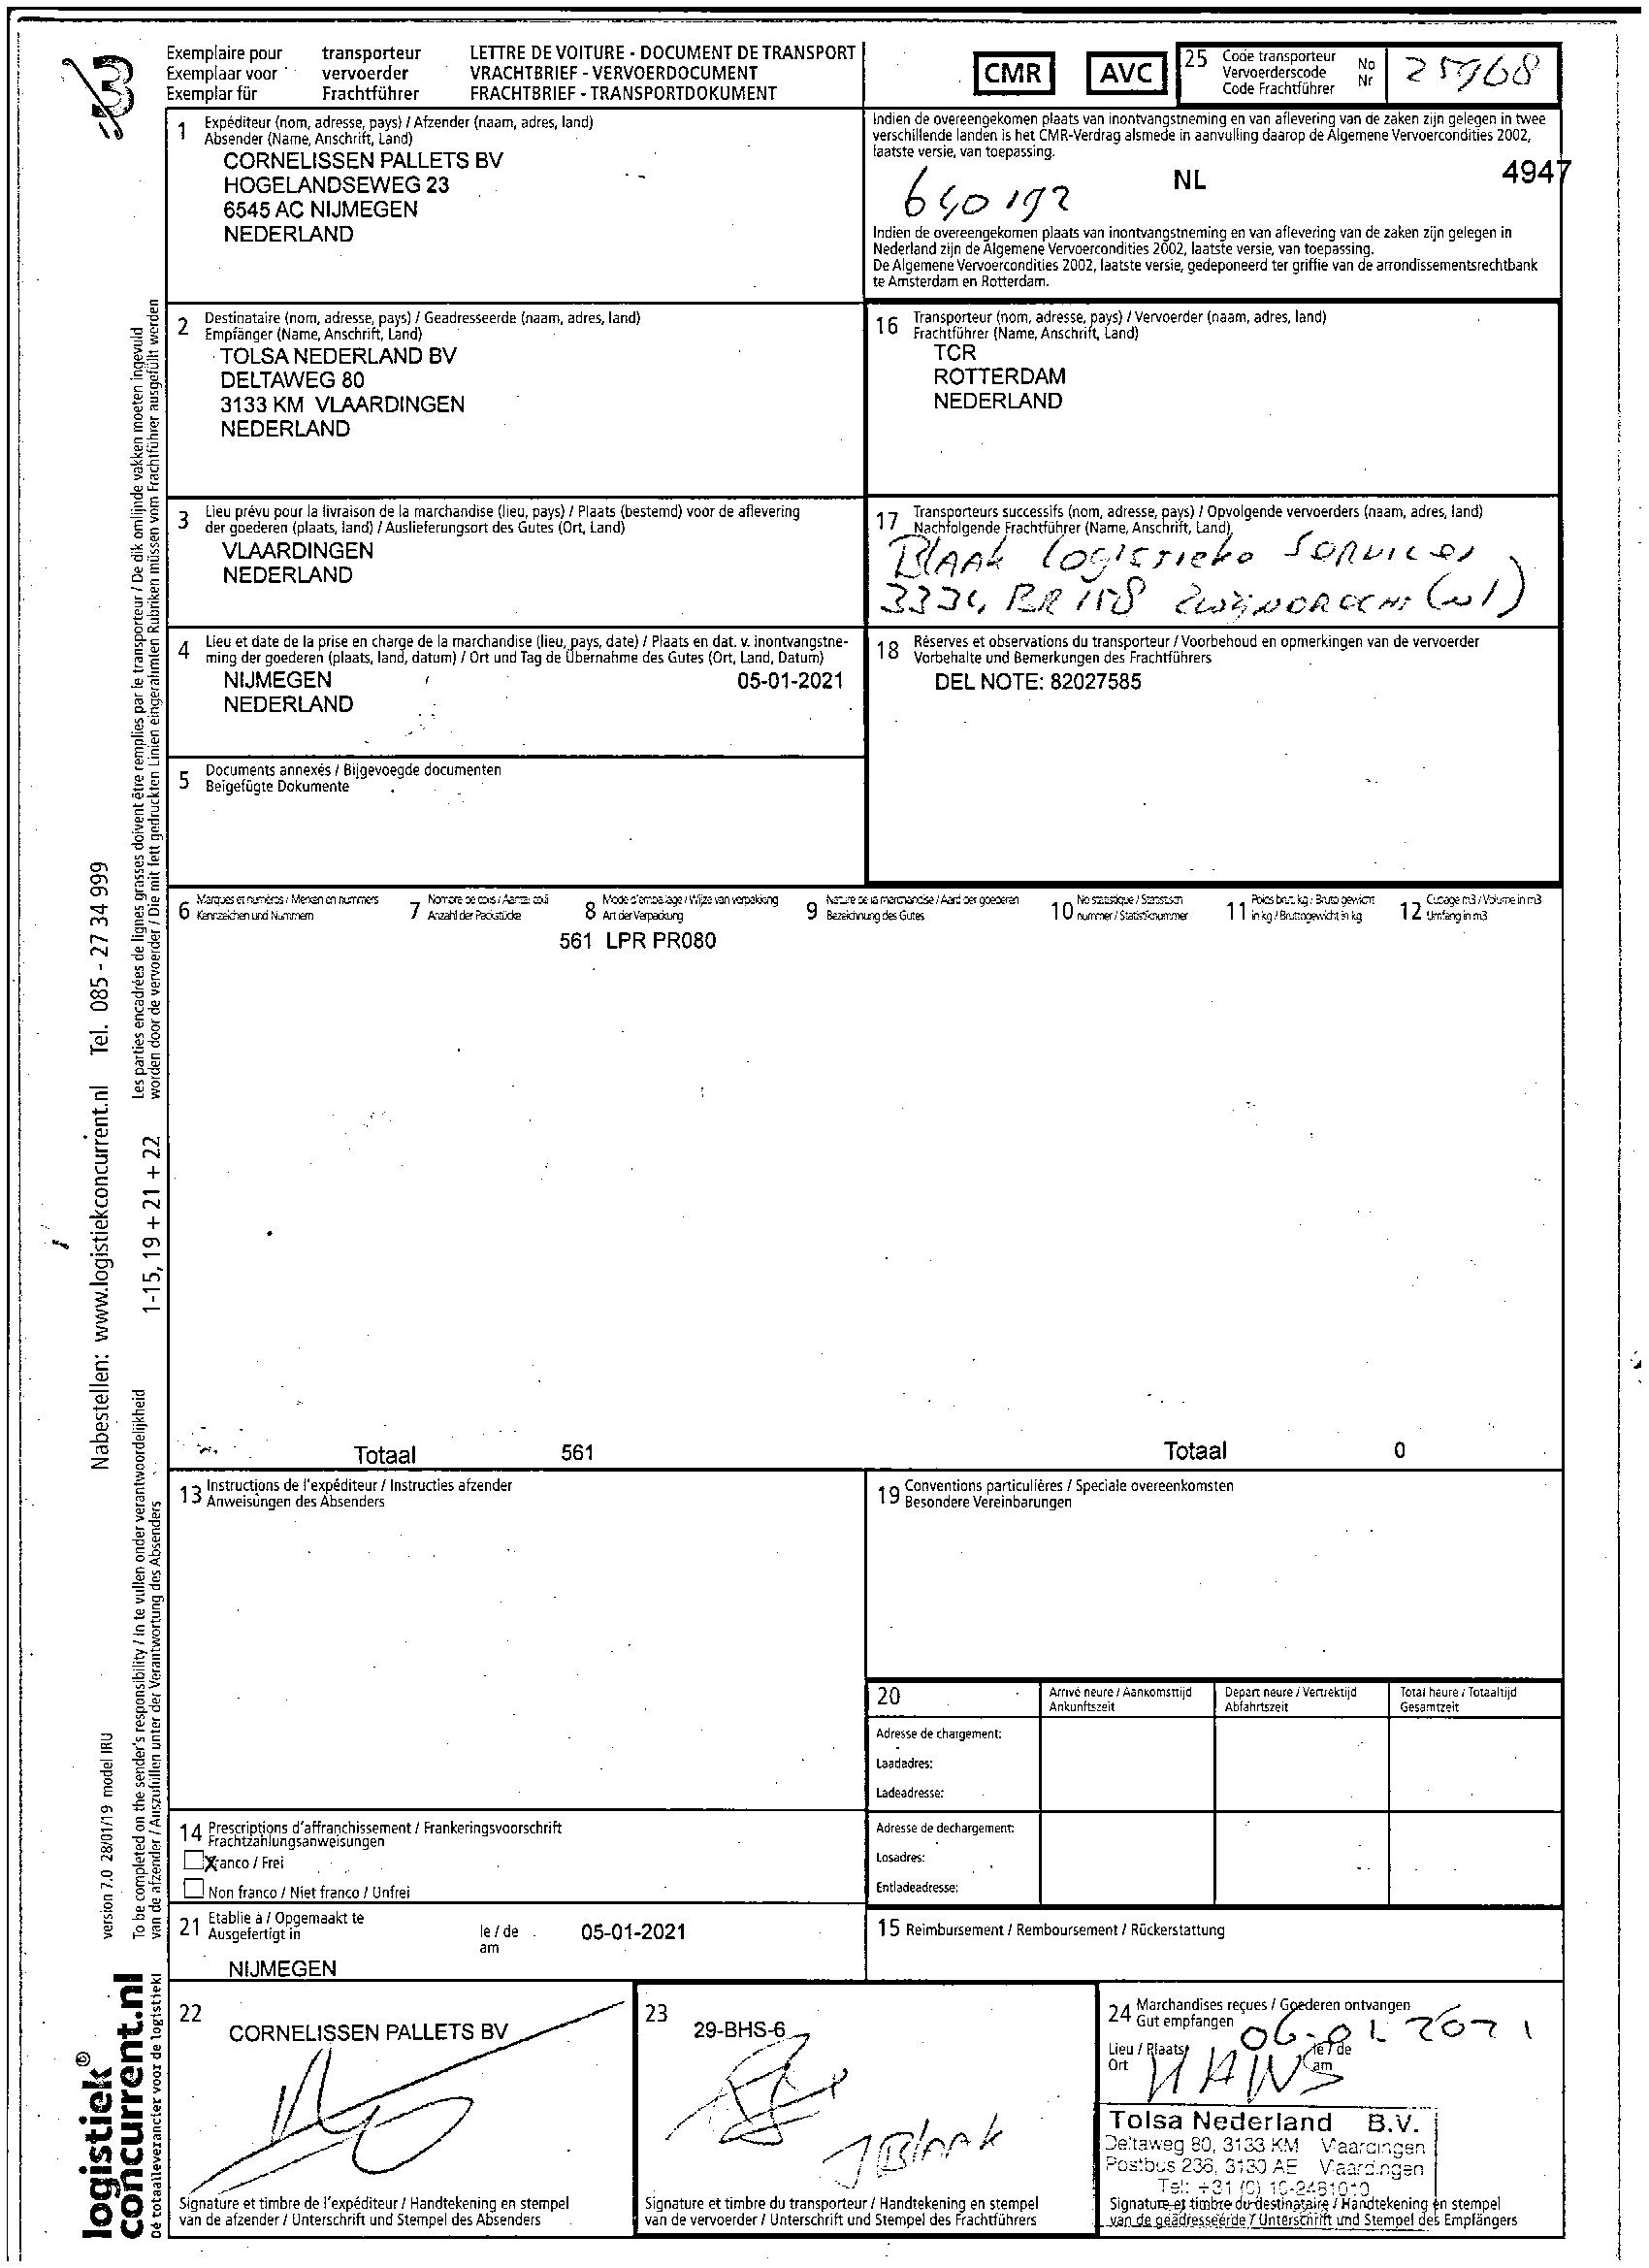 3
Exemplaire pour transporteur
Exemplaar voor vervoerder
Exemplar für Frachtführer
LETTRE DE VOITURE - DOCUMENT DE TRANSPORT
VRACHTBRIEF - VERVOERDOCUMENT
FRACHTBRIEF - TRANSPORTDOKUMENT
CMR
AVC
25 Code transporteur No
Vervoerderscode Nr
Code Frachtführer
25968
1 Expéditeur (nom, adresse, pays) / Afzender (naam, adres, land)
Absender (Name, Anschrift, Land)
CORNELISSEN PALLETS BV
HOGELANDSEWEG 23
6545 AC NIJMEGEN
NEDERLAND
Indien de overeengekomen plaats van inontvangstneming en van aflevering van de zaken zijn gelegen in twee
verschillende landen is het CMR-Verdrag alsmede in aanvulling daarop de Algemene Vervoercondities 2002,
laatste versie, van toepassing.
NL 4947
640192
Indien de overeengekomen plaats van inontvangstneming en van aflevering van de zaken zijn gelegen in
Nederland zijn de Algemene Vervoercondities 2002, laatste versie, van toepassing.
De Algemene Vervoercondities 2002, laatste versie, gedeponeerd ter griffie van de arrondissementsrechtbank
te Amsterdam en Rotterdam.
2 Destinataire (nom, adresse, pays) / Geadresseerde (naam, adres, land)
Empfänger (Name, Anschrift, Land)
TOLSA NEDERLAND BV
DELTAWEG 80
3133 KM VLAARDINGEN
NEDERLAND
16 Transporteur (nom, adresse, pays) / Vervoerder (naam, adres, land)
Frachtführer (Name, Anschrift, Land)
TCR
ROTTERDAM
NEDERLAND
3 Lieu prévu pour la livraison de la marchandise (lieu, pays) / Plaats (bestemd) voor de aflevering
der goederen (plaats, land) / Auslieferungsort des Gutes (Ort, Land)
VLAARDINGEN
NEDERLAND
17 Transporteurs successifs (nom, adresse, pays) / Opvolgende vervoerders (naam, adres, land)
Nachfolgende Frachtführer (Name, Anschrift, Land)
BLAAK Logistieke Services
3334 BR 158 Zwijndrecht (nl)
4 Lieu et date de la prise en charge de la marchandise (lieu, pays, date) / Plaats en dat. v. inontvangstne-
ming der goederen (plaats, land, datum) / Ort und Tag de Übernahme des Gutes (Ort, Land, Datum)
NIJMEGEN 05-01-2021
NEDERLAND
18 Réserves et observations du transporteur / Voorbehoud en opmerkingen van de vervoerder
Vorbehalte und Bemerkungen des Frachtführers
DEL NOTE: 82027585
5 Documents annexés / Bijgevoegde documenten
Beigefügte Dokumente
6 Marques et numéros / Merken en nummers
Kennzeichen und Nummern
7 Nombre de colis / Aantal colli
Anzahl der Packstücke
8 Mode d'emballage / Wijze van verpakking
Art der Verpackung
9 Nature de la marchandise / Aard der goederen
Bezeichnung des Gutes
10 No statistique / Statistisch
nummer / Statistiknummer
11 Poids brut. kg / Bruto gewicht
in kg / Bruttogewicht in kg
12 Cubage m3 / Volume in m3
Umfang in m3
561 LPR PR080
Totaal 561
Totaal 0
13 Instructions de l'expéditeur / Instructies afzender
Anweisungen des Absenders
19 Conventions particulières / Speciale overeenkomsten
Besondere Vereinbarungen
20 Arrivé heure / Aankomsttijd
Ankunftszeit
Depart heure / Vertrektijd
Abfahrtszeit
Total heure / Totaaltijd
Gesamtzeit
Adresse de chargement:
Laadadres:
Ladeadresse:
Adresse de dechargement:
Losadres:
Entladeadresse:
14 Prescriptions d'affranchissement / Frankeringsvoorschrift
Frachtzahlungsanweisungen
X ranco / Frei
Non franco / Niet franco / Unfrei
21 Etablie à / Opgemaakt te
Ausgefertigt in
le / de
am
05-01-2021
NIJMEGEN
15 Reimbursement / Remboursement / Rückerstattung
22
CORNELISSEN PALLETS BV
Signature et timbre de l'expéditeur / Handtekening en stempel
van de afzender / Unterschrift und Stempel des Absenders
23
29-BHS-6
J Blaak
Signature et timbre du transporteur / Handtekening en stempel
van de vervoerder / Unterschrift und Stempel des Frachtführers
24 Marchandises reçues / Goederen ontvangen
Gut empfangen
06-01-2021
Lieu / Plaats
Ort
le / de
am
HANS
Tolsa Nederland B.V.
Deltaweg 80, 3133 KM Vlaardingen
Postbus 236, 3130 AE Vlaardingen
Tel: +31 (0) 10-2481010
Signature et timbre du destinataire / Handtekening en stempel
van de geadresseerde / Unterschrift und Stempel des Empfängers
Les parties encadrées de lignes grasses doivent être remplies par le transporteur / De dik omlijnde vakken moeten ingevuld
worden door de vervoerder / Die mit fett gedruckten Linien eingerahmten Rubriken müssen vom Frachtführer ausgefüllt werden
1-15, 19 + 21 + 22
To be completed on the sender's responsibility / In te vullen onder verantwoordelijkheid
van de afzender / Auszufüllen unter der Verantwortung des Absenders
Nabestellen: www.logistiekconcurrent.nl Tel. 085 - 27 34 999
version 7.0 28/01/19 model IRU
logistiek®
concurrent.nl
Dé totaalleverancier voor de logistiek!